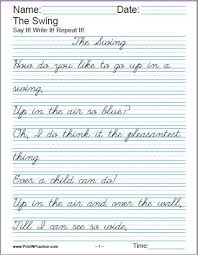 Name: Date:
The Swing
Say It! Write It! Repeat It!
The Swing
How do you like to go up in a
swing,
Up in the air so blue?
Oh, I do think it the pleasantest
thing
Ever a child can do!
Up in the air and over the wall,
Till I can see so wide,
www.PrintNPractice.com - 1 - Time: